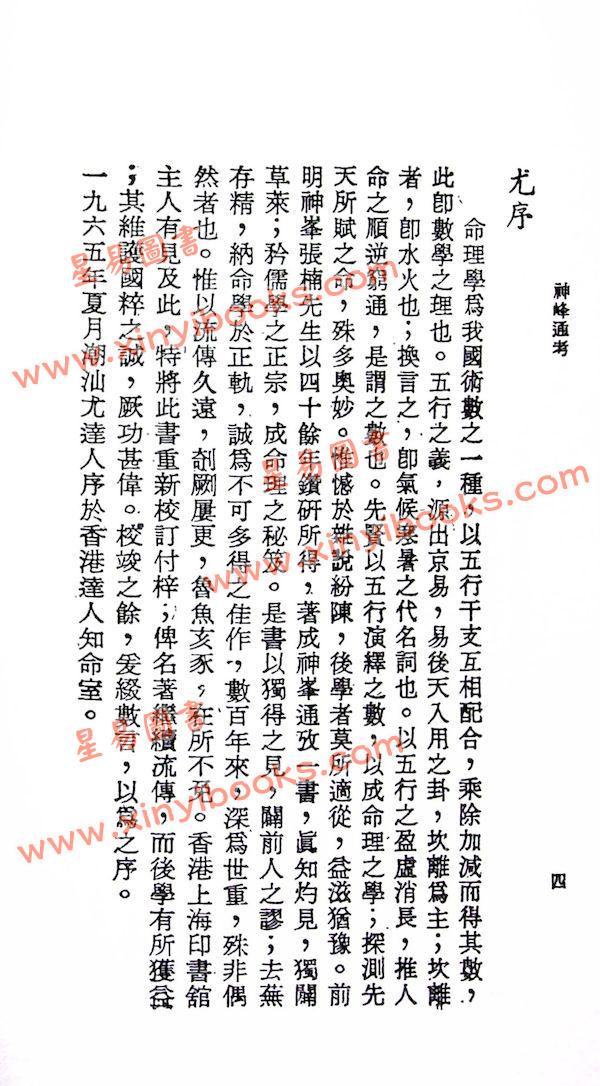 神峰通考
四
尤序
命理學爲我國術數之一種，以五行干支互相配合，乘除加減而得其數，
此卽數學之理也。五行之義，源出京易，易後天入用之卦，坎離爲主；坎離
者，卽水火也；換言之，卽氣候寒暑之代名詞也。以五行之盈虛消長，推人
命之順逆窮通，是謂之數也。先賢以五行演繹之數，以成命理之學；探測先
天所賦之命，殊多奧妙。惟憾於雜說紛陳，後學者莫所適從，益滋猶豫。前
明神峯張楠先生以四十餘年鑽研所得，著成神峯通攷一書，眞知灼見，獨闢
草萊；矜儒學之正宗，成命理之秘笈。是書以獨得之見，闢前人之謬；去蕪
存精，納命學於正軌，誠爲不可多得之佳作，數百年來，深爲世重，殊非偶
然者也。惟以流傳久遠，剞劂屢更，魯魚亥豕，在所不免。香港上海印書舘
主人有見及此，特將此書重新校訂付梓；俾名著繼續流傳，而後學有所獲益
；其維護國粹之誠，厥功甚偉。校竣之餘，爰綴數言，以爲之序。
一九六五年夏月潮汕尤達人序於香港達人知命室。
星易圖書
www.xinyibooks.com
星易圖書
www.xinyibooks.com
星易圖書
www.xinyibooks.com